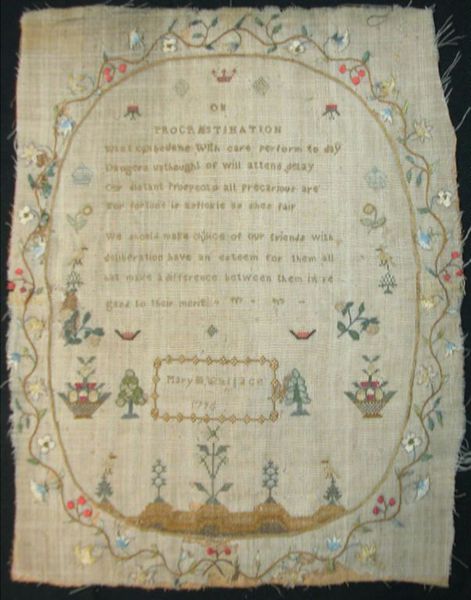 ON
PROCRASTINATION
What can be done with care perform to day
Dangers unthought of will attend delay
Our distant Prospects all precarious are
For fortune is as fickle as shes fair
We should make choice of our friends with
deliberation have an esteem for them all
but make a difference between them in re
gard to their merit
Mary Wallace